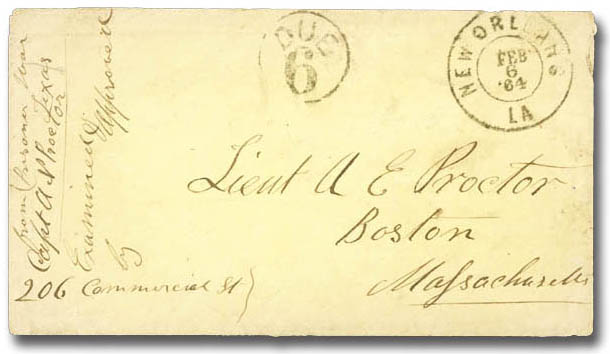 DUE
6
NEW ORLEANS
FEB
6
'64
LA
from Prisoner War
Capt A N Proctor Texas
Examined & Approved
by
Lieut A E Proctor
Boston
Massachusetts
206 Commercial St